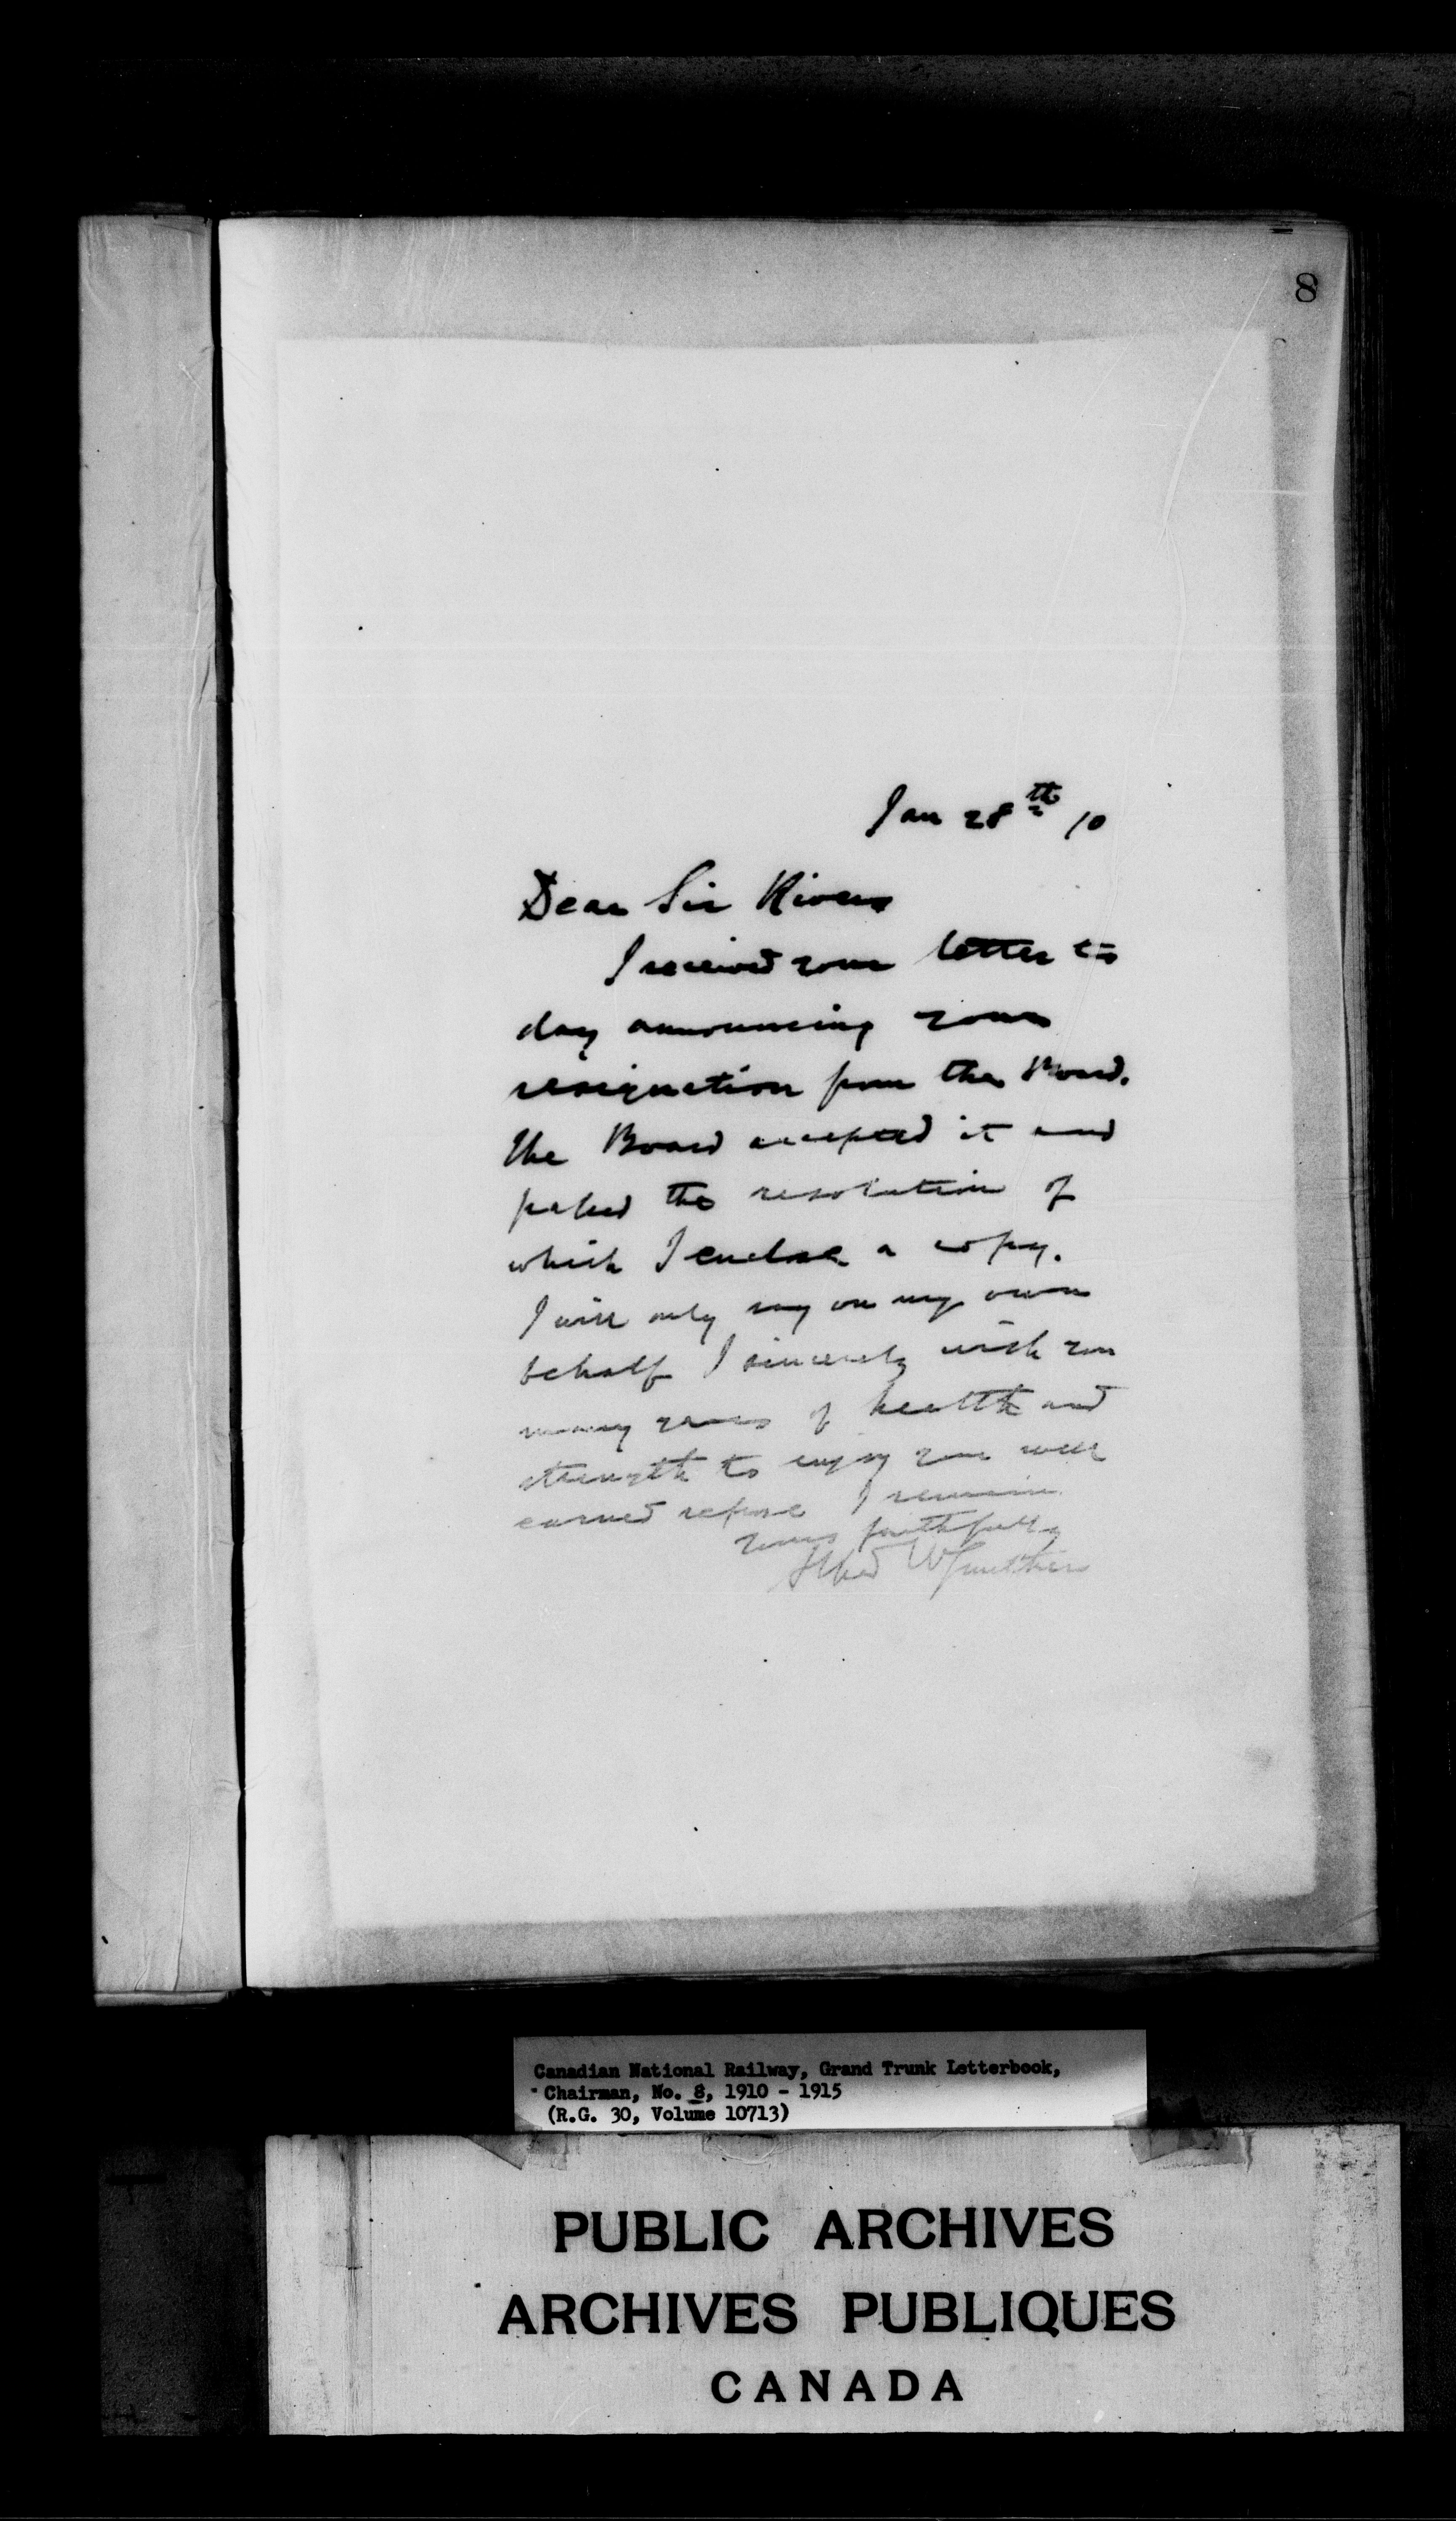 8
Jan 28th 10
Dear Sir Rivers
I received your letter to
day announcing your
resignation from the Board.
The Board accepted it and
passed the resolution of
which I enclose a copy.
I will only say on my own
behalf I sincerely wish you
many years of health and
strength to enjoy your well
earned repose I remain
yours faithfully
Alfred W Smithers
Canadian National Railway, Grand Trunk Letterbook,
Chairman, No. 8, 1910 - 1915
(R.G. 30, Volume 10713)
PUBLIC ARCHIVES
ARCHIVES PUBLIQUES
CANADA